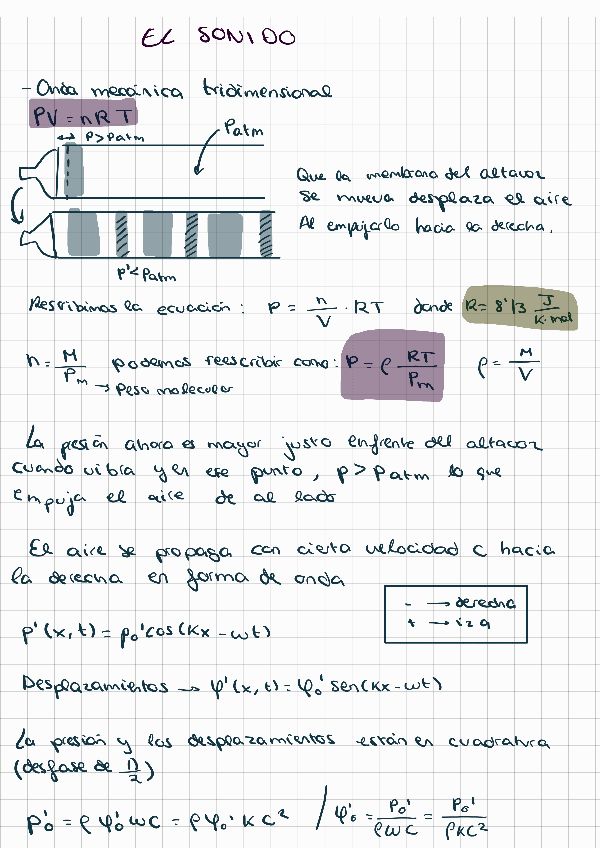 EL SONIDO
- Onda mecánica tridimensional
PV = nRT
P > Patm
Patm
Que la membrana del altavoz
se mueva desplaza el aire
Al empujarlo hacia la derecha.
P' < Patm
Rescribimos la ecuación: P = n/V · RT donde R = 8'13 J/K·mol
n = M/Pm podemos reescribir como: P = ρ RT/Pm ρ = M/V
→ Peso molecular
La presión ahora es mayor justo enfrente del altavoz
cuando vibra y en ese punto, p > Patm lo que
empuja el aire de al lado
El aire se propaga con cierta velocidad c hacia
la derecha en forma de onda
- → derecha
+ → izq
p'(x,t) = p₀' cos(Kx - ωt)
Desplazamientos → φ'(x,t) = φ₀' sen(Kx - ωt)
La presión y los desplazamientos están en cuadratura
(desfase de π/2)
p₀' = ρ φ₀' ω c = ρ φ₀' K c² / φ₀' = p₀'/ρωc = p₀'/ρKc²